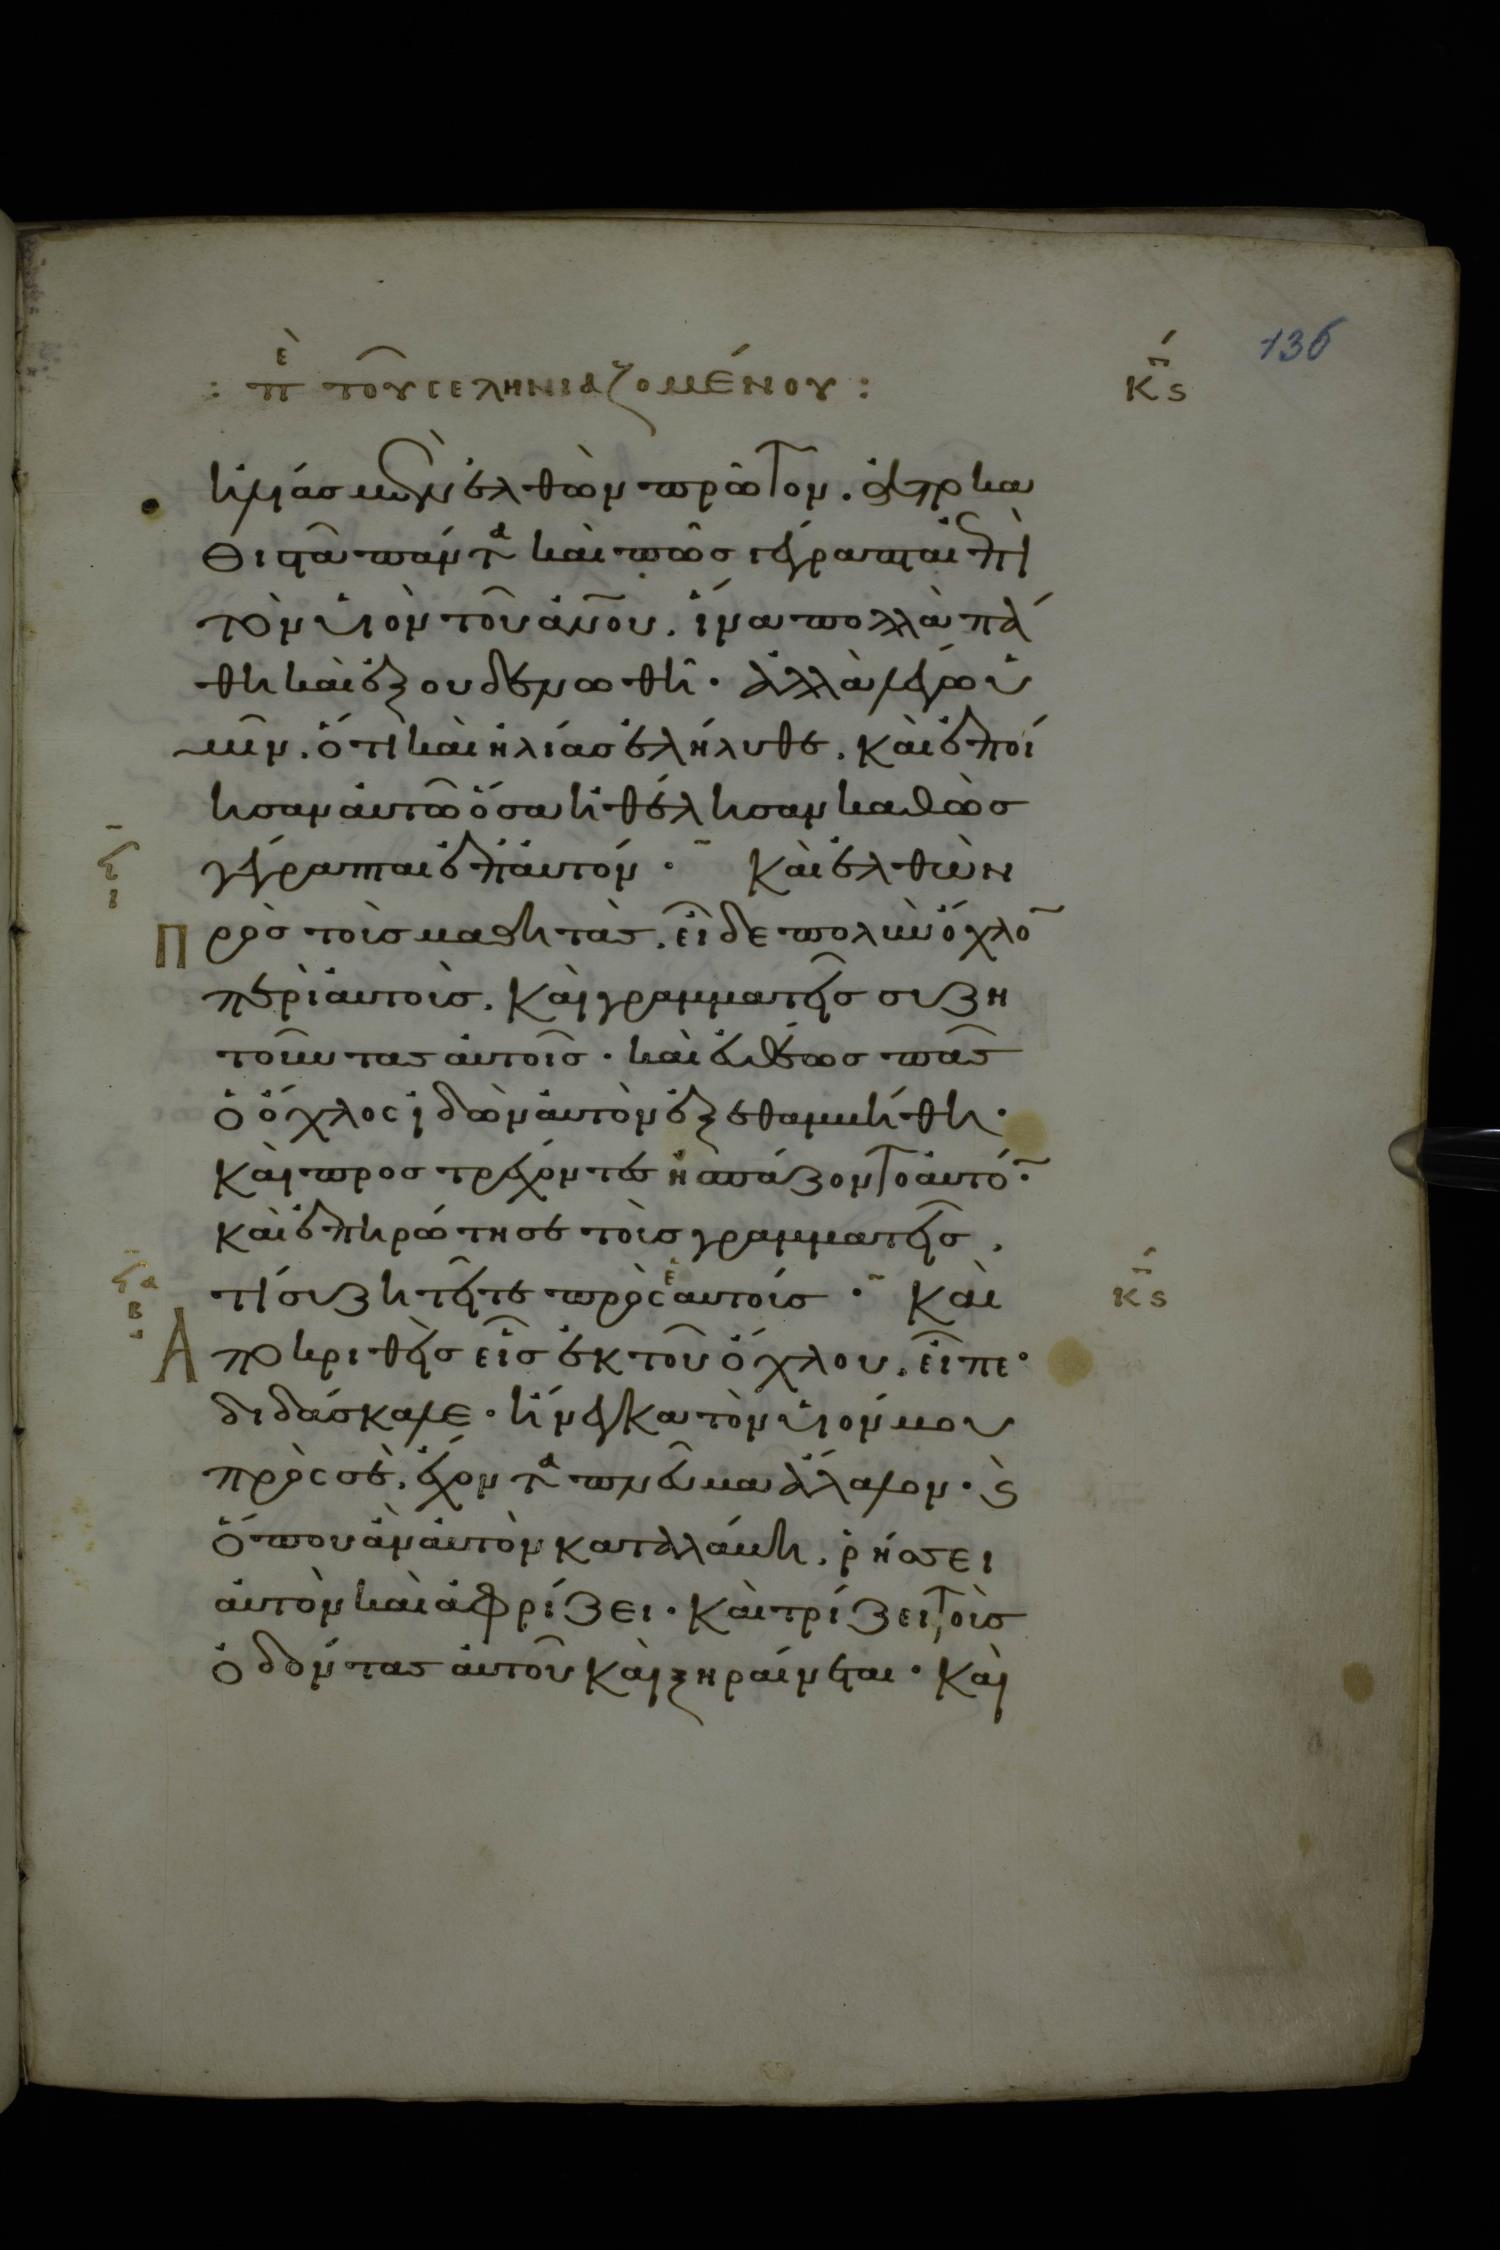 136
: πε τοῦ σεληνιαζομένου :
κς
ἡλίας μὲν ἐλθὼν πρῶτον. ἀποκα
θιστᾶ πάντα καὶ πῶς γέγραπται ἐπὶ
τὸν υἱὸν τοῦ ἀνου. ἵνα πολλὰ πά
θη καὶ ἐξουδενωθῆ. ἀλλὰ λέγω ὑ
μῖν. ὅτι καὶ ἠλίας ἐλήλυθε. καὶ ἐποί
ησαν αὐτῶ ὅσα ἠθέλησαν καθὼς
γέγραπται ἐπ' αὐτόν. Καὶ ἐλθὼν
Πρὸς τοὺς μαθητὰς. εἶδε πολὺν ὄχλο
περὶ αὐτοὺς. καὶ γραμματεῖς συζη
τοῦντας αὐτοῖς. καὶ εὐθέως πᾶς
ὁ ὄχλος ἰδὼν αὐτὸν ἐξεθαμβήθη.
καὶ προστρέχοντες ἠσπάζοντο αὐτό.
καὶ ἐπηρώτησε τοὺς γραμματεῖς.
τί συζητεῖτε πρὸς ἑαυτούς. Καὶ
κς
Ἀποκριθεὶς εἷς ἐκ τοῦ ὄχλου. εἶπε.
διδάσκαλε. ἤνεγκα τὸν υἱόν μου
πρὸς σὲ. ἔχοντα πνεῦμα ἄλαλον. ϛ
ὅπου ἂν αὐτὸν καταλάβη. ῥήσσει
αὐτὸν καὶ ἀφρίζει. καὶ τρίζει τοὺς
ὀδόντας αὐτοῦ καὶ ξηραίνεται. καὶ